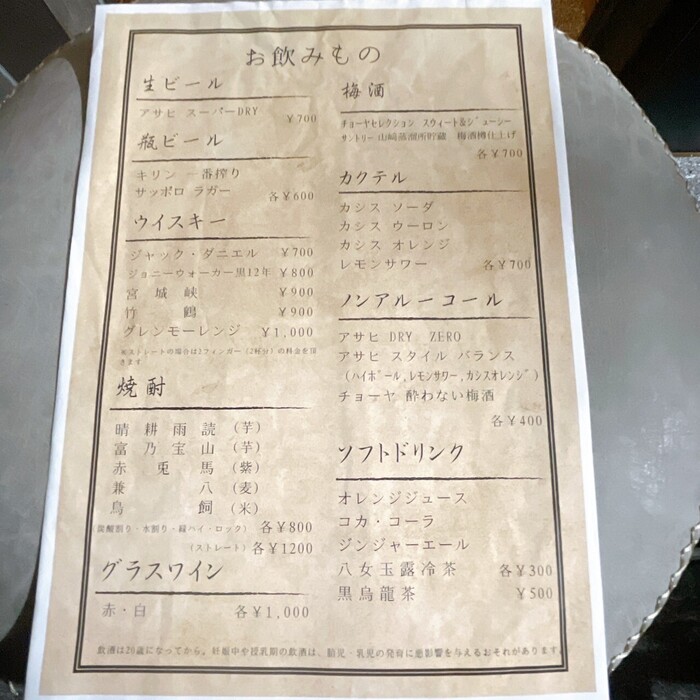 お飲みもの
生ビール
アサヒ スーパーDRY ¥700
瓶ビール
キリン 一番搾り
サッポロ ラガー 各¥600
ウイスキー
ジャック・ダニエル ¥700
ジョニーウォーカー黒12年 ¥800
宮城峡 ¥900
竹鶴 ¥900
グレンモーレンジ ¥1,000
※ストレートの場合は2フィンガー(2杯分)の料金を頂きます
焼酎
晴耕雨読(芋)
富乃宝山(芋)
赤兎馬(紫)
兼八(麦)
鳥飼(米)
(炭酸割り・水割り・緑ハイ・ロック) 各¥800
(ストレート) 各¥1200
グラスワイン
赤・白 各¥1,000
梅酒
チョーヤセレクション スウィート&ジューシー
サントリー 山崎蒸溜所貯蔵 梅酒樽仕上げ
各¥700
カクテル
カシス ソーダ
カシス ウーロン
カシス オレンジ
レモンサワー 各¥700
ノンアルーコール
アサヒ DRY ZERO
アサヒ スタイル バランス
(ハイボール,レモンサワー,カシスオレンジ)
チョーヤ 酔わない梅酒
各¥400
ソフトドリンク
オレンジジュース
コカ・コーラ
ジンジャーエール
八女玉露冷茶 各¥300
黒烏龍茶 ¥500
飲酒は20歳になってから。妊娠中や授乳期の飲酒は、胎児・乳児の発育に悪影響を与えるおそれがあります。